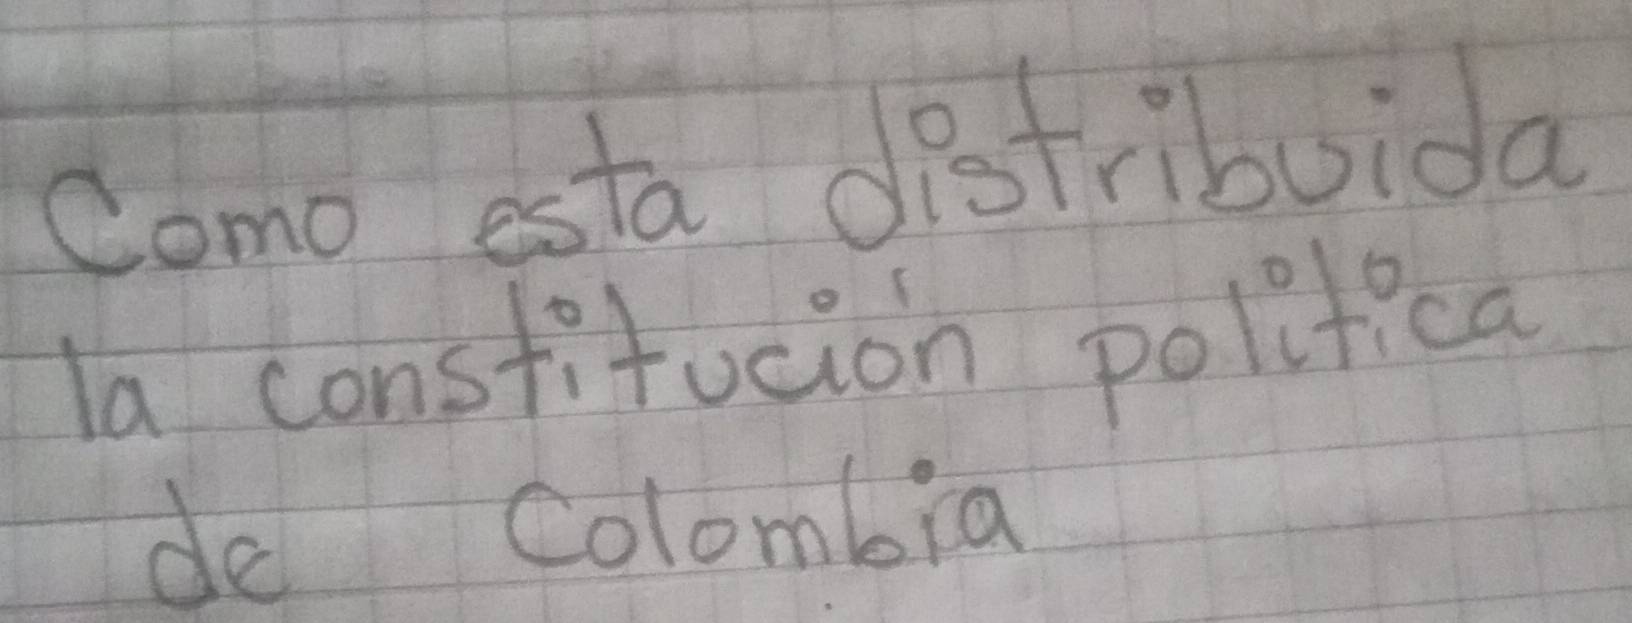 Como esta distribuida
la constitución politica
de Colombia